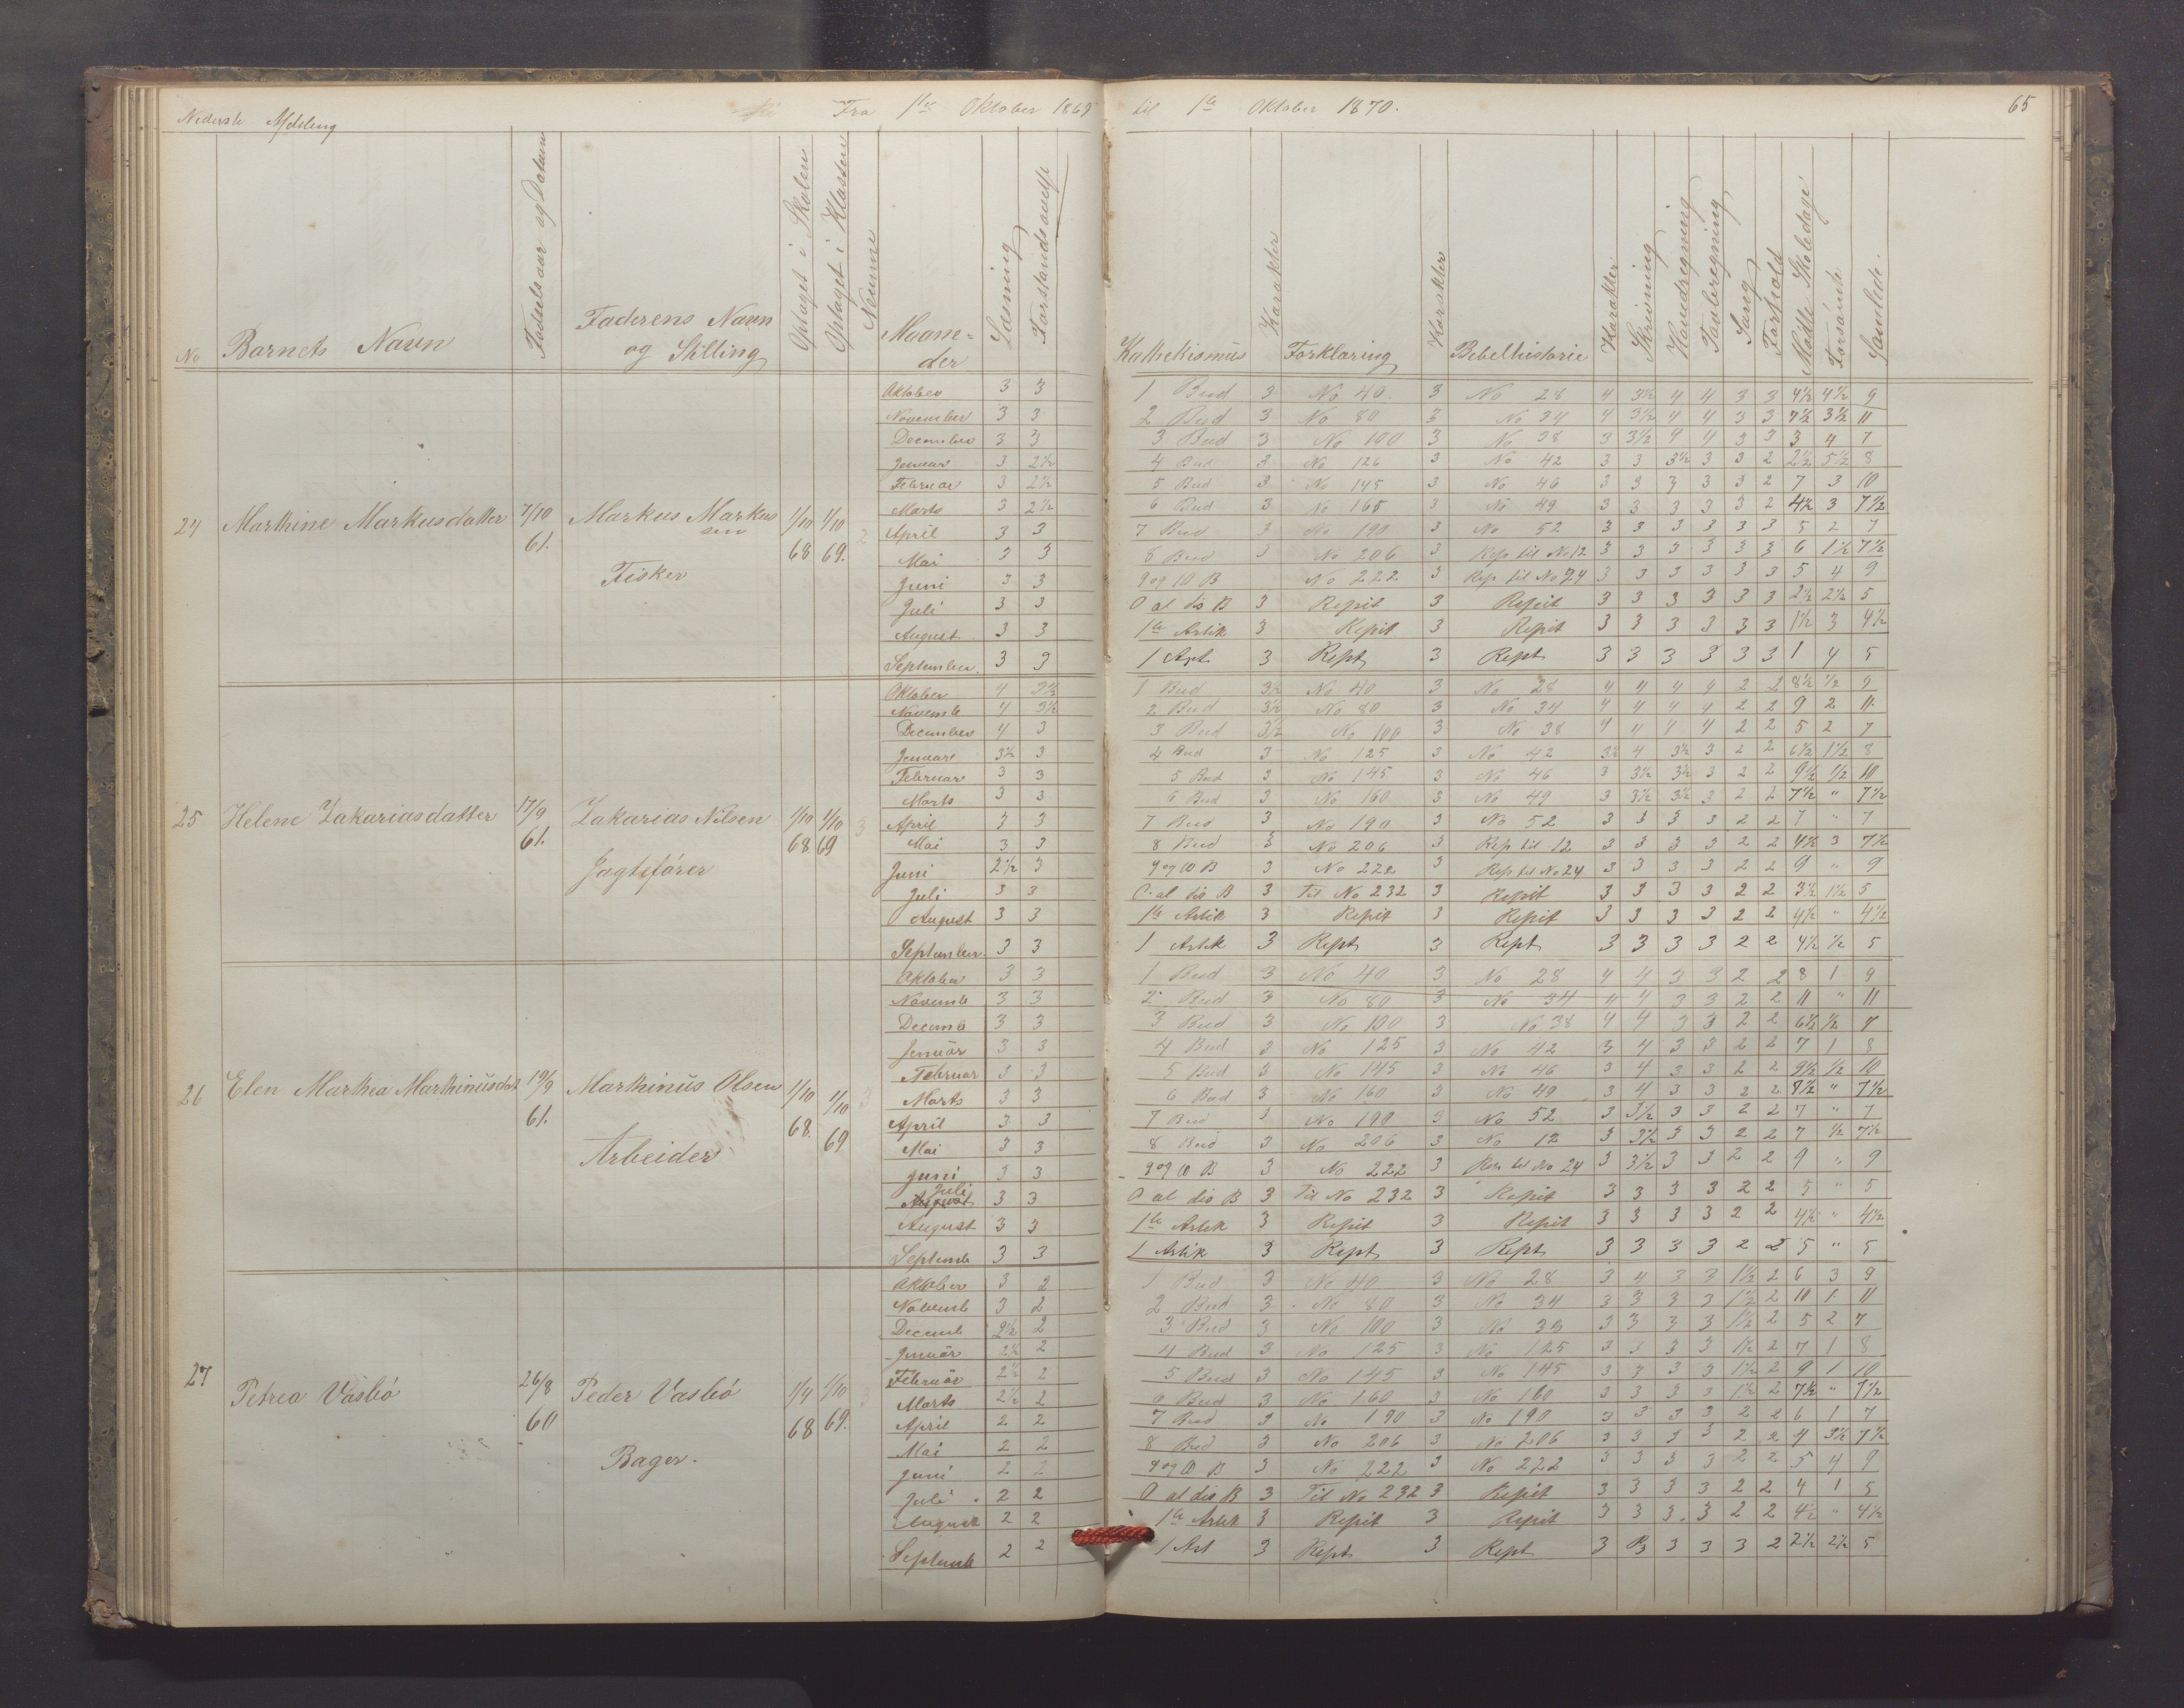 Nederste Afdeling Fra 1ste Oktober 1869 til 1ste Oktober 1870. 65
No Barnets Navn Fødselsaar og Datum Faderens Navn og Stilling Optaget i Skolen Optaget i Klassen Maaneder Læsning Forstandsøvelse Kathekismus Karakter Forklaring Karakter Bibelhistorie Karakter Skrivning Hovedregning Tavleregning Sang Forhold Mødte Skoledage Forsømte Samlede.
24 Marthine Markusdatter 7/10 61. Markus Markussen Fisker 1/10 68 1/10 69. 2
Oktober 3 3 1 Bud 3 No 40 3 No 28 4 3½ 4 4 3 3 4½ 4½ 9
November 3 3 2 Bud 3 No 80 3 No 34 4 3½ 4 4 3 3 7½ 3½ 11
December 3 3 3 Bud 3 No 100 3 No 38 3 3½ 4 4 3 3 3 4 7
Januar 3 2½ 4 Bud 3 No 126 3 No 42 3 3 3½ 3 3 2 2½ 5½ 8
Februar 3 2½ 5 Bud 3 No 145 3 No 46 3 3 3 3 3 2 7 3 10
Marts 3 2½ 6 Bud 3 No 165 3 No 49 3 3 3 3 3 2 4½ 3 7½
April 3 3 7 Bud 3 No 190 3 No 52 3 3 3 3 3 3 5 2 7
Mai 3 3 8 Bud 3 No 206 3 Rep til No 12 3 3 3 3 3 3 6 1½ 7½
Juni 3 3 9 og 10 B No 222 3 Rep til No 24 3 3 3 3 3 3 5 4 9
Juli 3 3 O al dis B 3 Repit 3 Repit 3 3 3 3 3 3 2½ 2½ 5
August 3 3 1ste Artik 3 Repit 3 Repit 3 3 3 3 3 3 1½ 3 4½
September. 3 3 1 Art 3 Rept 3 Rept 3 3 3 3 3 3 1 4 5
25 Helene Zakariasdatter 17/9 61. Zakarias Nilsen Jagtefører 1/10 68 1/10 69 3
Oktober 4 3½ 1 Bud 3½ No 40 3 No 28 4 4 4 4 2 2 8½ ½ 9
Novemb 4 3½ 2 Bud 3½ No 80 3 No 34 4 4 4 4 2 2 9 2 11
December 4 3 3 Bud 3½ No 100 3 No 38 4 4 4 4 2 2 5 2 7
Januar 3½ 3 4 Bud 3 No 125 3 No 42 3½ 4 3½ 3 2 2 6½ 1½ 8
Februar 3 3 5 Bud 3 No 145 3 No 46 3 3½ 3½ 3 2 2 9½ ½ 10
Marts 3 3 6 Bud 3 No 160 3 No 49 3 3½ 3½ 3 2 2 7½ " 7½
April 3 3 7 Bud 3 No 190 3 No 52 3 3 3 3 2 2 7 " 7
Mai 3 3 8 Bud 3 No 206 3 Rep til 12 3 3 3 3 2 2 4½ 3 7½
Juni 2½ 3 9 og 10 B 3 No 222 3 Rep til No 24 3 3 3 3 2 2 9 " 9
Juli 3 3 O. al dis B 3 Til No 232 3 Repit 3 3 3 3 2 2 3½ 1½ 5
August 3 3 1ste Artik 3 Repit 3 Repit 3 3 3 3 2 2 4½ " 4½
September. 3 3 1 Artik 3 Rept 3 Rept 3 3 3 3 2 2 4½ ½ 5
26 Elen Marthea Marthinusdat 19/9 61. Marthinus Olsen Arbeider 1/10 68. 1/10 69 3
Oktober 3 3 1 Bud 3 No 40 3 No 28 4 4 3 3 2 2 8 1 9
Novemb 3 3 2 Bud 3 No 80 3 No 34 4 4 3 3 2 2 11 " 11
Decemb 3 3 3 Bud 3 No 100 3 No 38 4 4 3 3 2 2 6½ ½ 7
Januar 3 3 4 Bud 3 No 125 3 No 42 3 4 3 3 2 2 7 1 8
Februar 3 3 5 Bud 3 No 145 3 No 46 3 4 3 3 2 2 9½ ½ 10
Marts 3 3 6 Bud 3 No 160 3 No 49 3 4 3 3 2 2 7½ " 7½
April 3 3 7 Bud 3 No 190 3 No 52 3 3½ 3 3 2 2 7 " 7
Mai 3 3 8 Bud 3 No 206 3 No 12 3 3½ 3 3 2 2 7 ½ 7½
Juni 3 3 9 og 10 B 3 No 222 3 Rep til No 24 3 3½ 3 3 2 2 9 " 9
Juli 3 3 O al dis B 3 Til No 232 3 Repit 3 3 3 3 2 2 5 " 5
August 3 3 1ste Artik 3 Repit 3 Repit 3 3 3 3 2 2 4½ " 4½
Septemb 3 3 1 Artik 3 Rept 3 Rept 3 3 3 3 2 2 5 " 5
27 Petrea Vasbö 26/8 60 Peder Vasbö Bager. 1/4 68 1/10 69. 3
Oktober 3 2 1 Bud 3 No 40 3 No 28 3 4 3 3 1½ 2 6 3 9
Novemb 3 2 2 Bud 3 No 80 3 No 34 3 3 3 3 1½ 2 10 1 11
Decemb 2½ 2 3 Bud 3 No 100 3 No 38 3 3 3 3 1½ 2 5 2 7
Januar 2½ 2 4 Bud 3 No 125 3 No 125 3 3 3 3 1½ 2 7 1 8
Februar 2½ 2 5 Bud 3 No 145 3 No 145 3 3 3 3 1½ 2 9 1 10
Marts 2½ 2 6 Bud 3 No 160 3 No 160 3 3 3 3 1½ 2 7½ " 7½
April 2 2 7 Bud 3 No 190 3 No 190 3 3 3 3 2 2 6 1 7
Mai 2 2 8 Bud 3 No 206 3 No 206 3 3 3 3 2 2 4 3½ 7½
Juni 2 2 9 og 10 B 3 No 222 3 No 222 3 3 3 3 2 2 5 4 9
Juli 2 2 O al dis B 3 Til No 232 3 Repit 3 3 3 3 2 2 4 1 5
August 2 2 1ste Artik 3 Repit 3 Repit 3 3 3 3 2 2 4½ " 4½
Septemb 2 2 1 Art 3 Rept 3 Rept 3 3 3 3 3 2 2½ 2½ 5